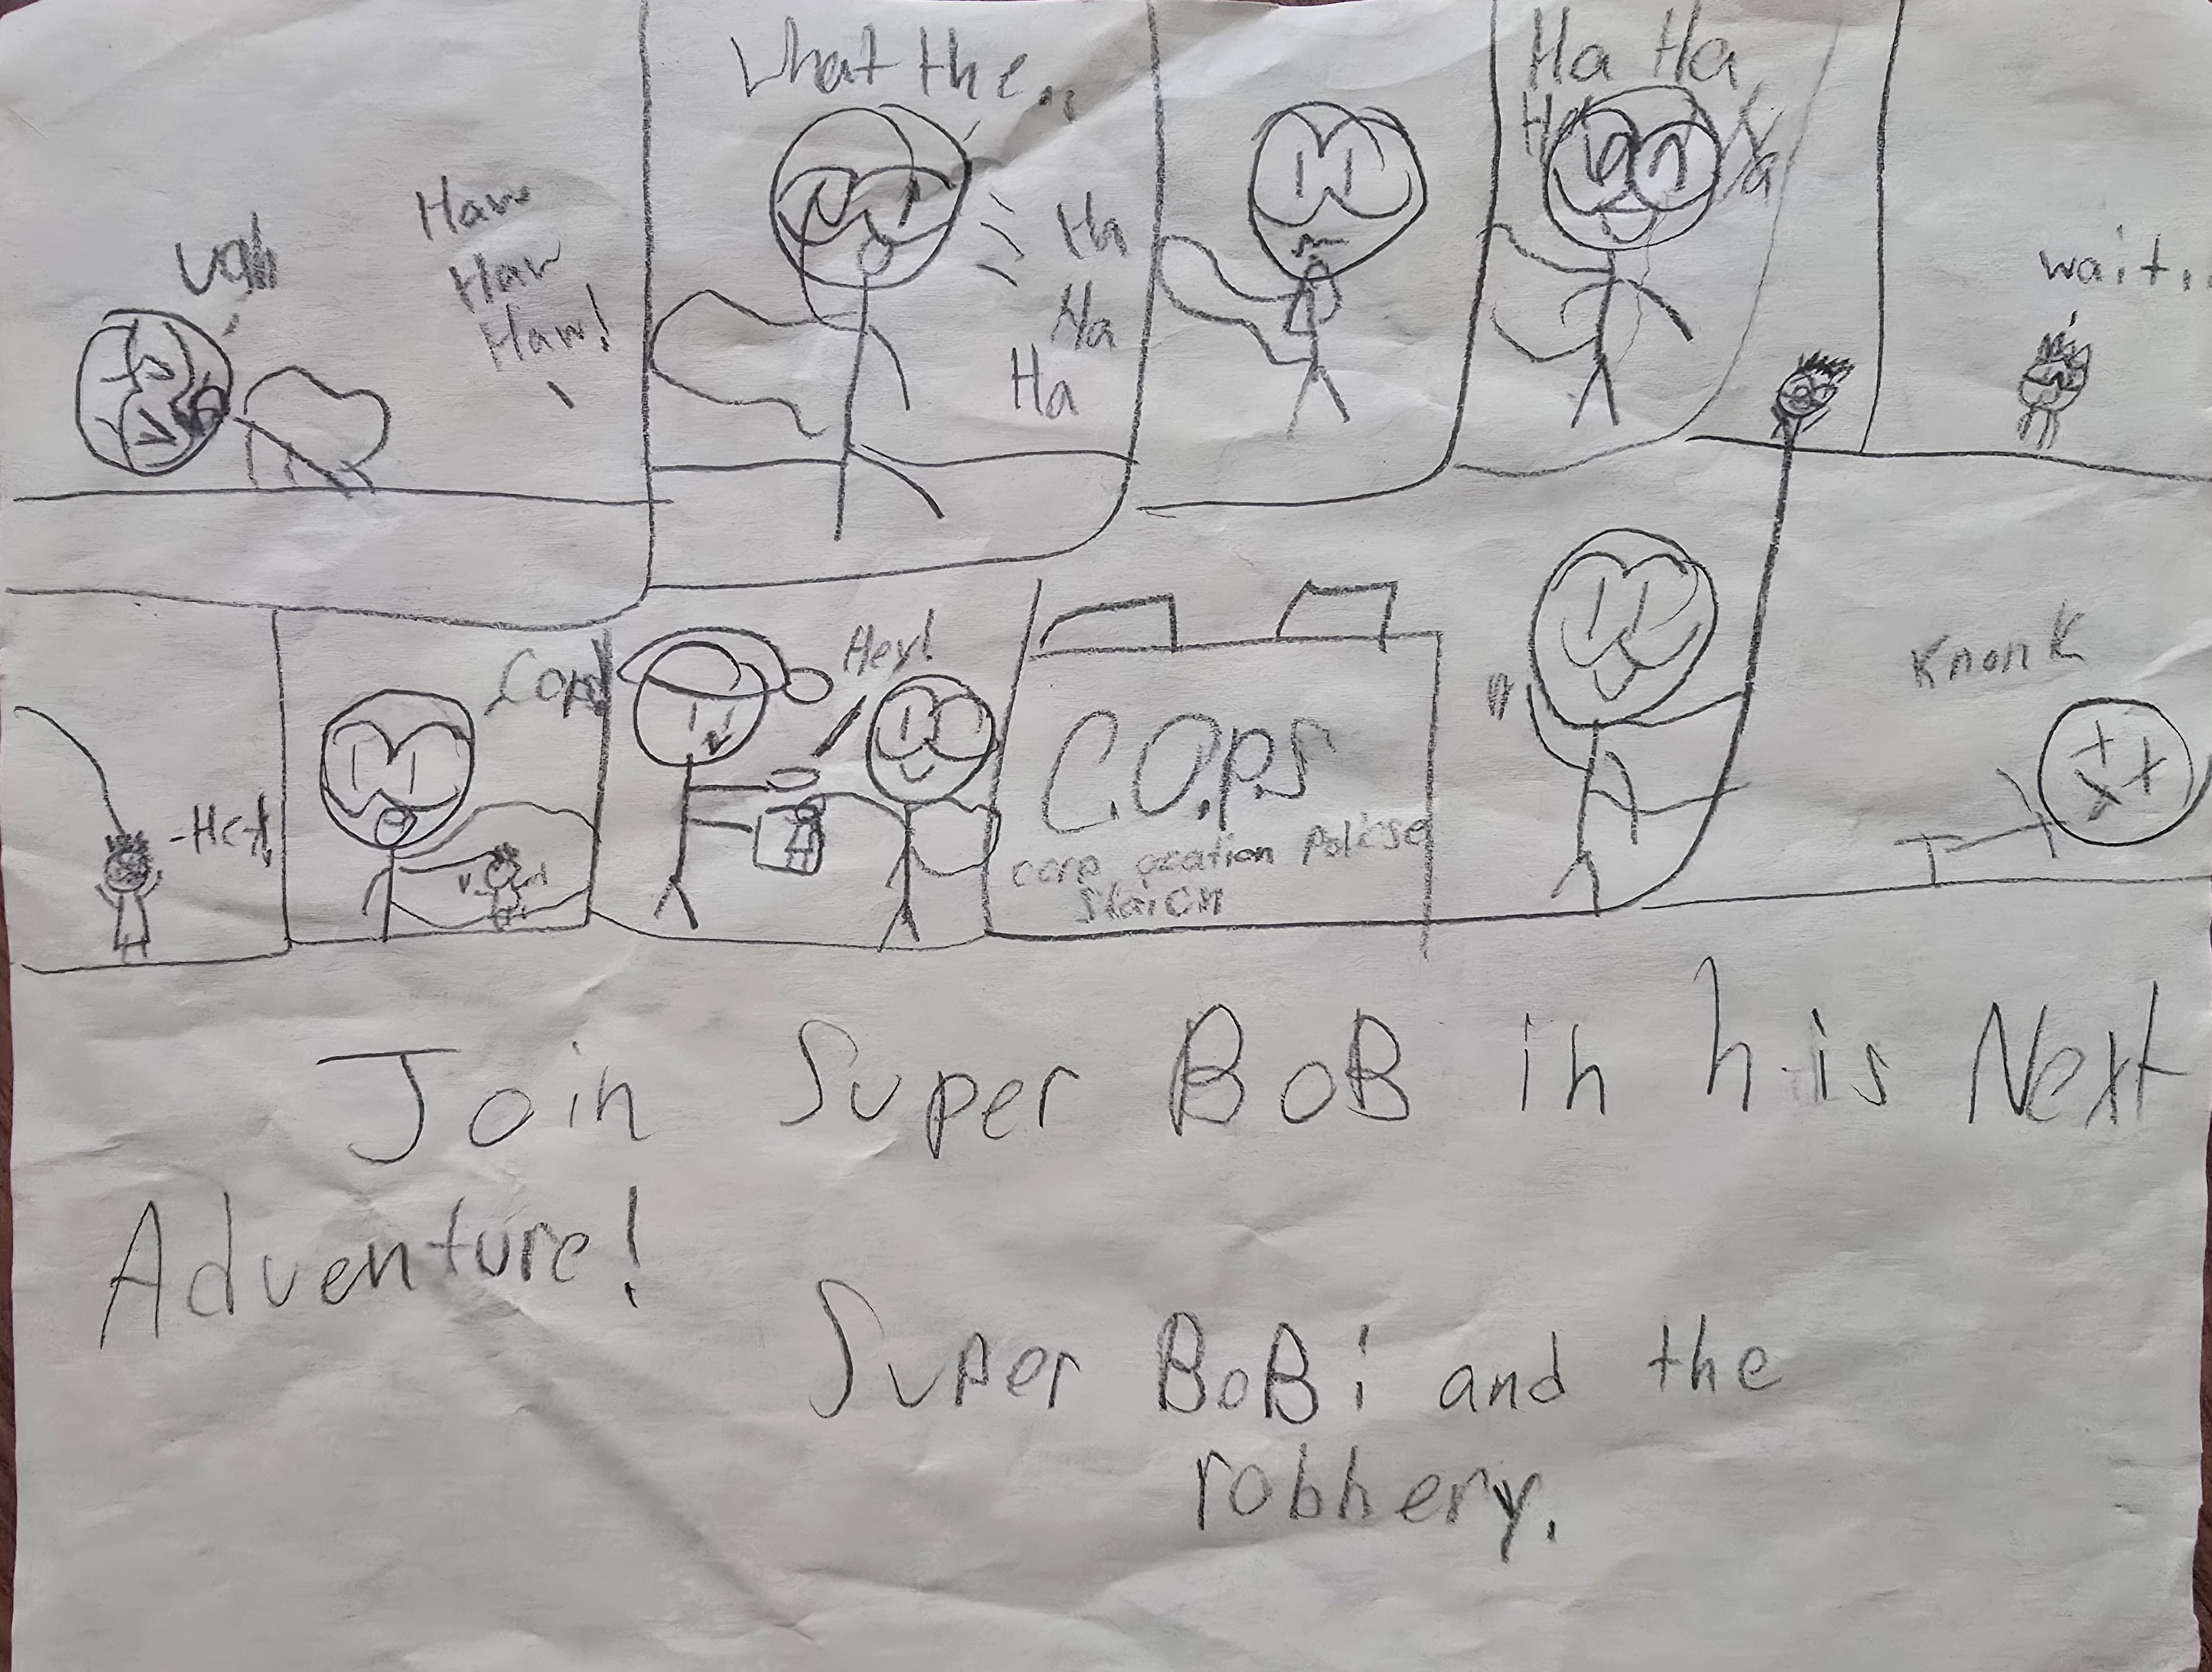 Ugh
Haw
Haw
Haw!
What the...
Ha
Ha
Ha
Ha Ha
Ha
wait.
Hey!
C.O.P.S
corp oration Policse
Staion
Knonk
Join Super BoB in his Next
Adventure!
Super BoB: and the
robbery.